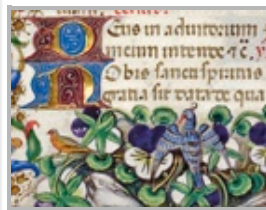 Deus in adiutorium
meum intende ⁊ c̄.
Nobis sancti spiritus
gratia sit data de qua